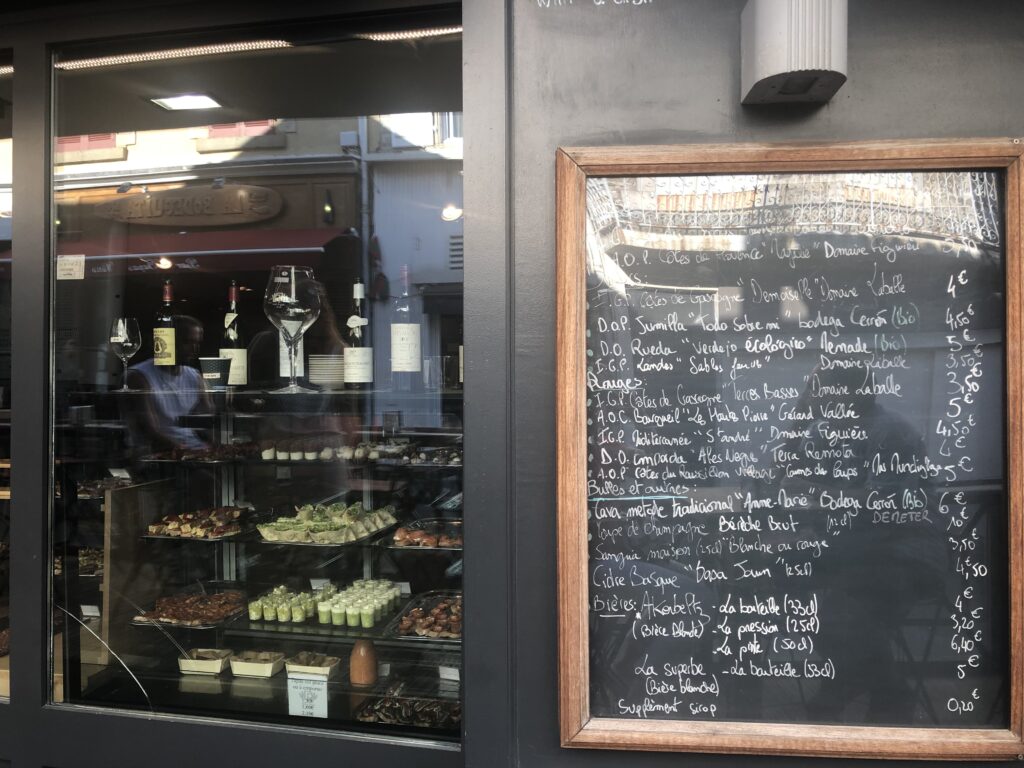 A.O.P. Côtes de Provence Domaine Figuière
I.G.P. Côtes de Gascogne "Demoiselle" Domaine Laballe 4€
D.O.P. Jumilla "Todo Sobre mi" Bodega Cerrón (Bio) 4,50
D.O. Rueda "Verdejo écologico" Menade (Bio) 5€
I.G.P. Landes "Sables fauves" Domaine Laballe 3,50
Rouges:
I.G.P. Côtes de Gascogne Terres Basses" Domaine Laballe 3,50
A.O.C. Bourgueil "La Haute Pierre" Gérard Vallée 5€
I.G.P. Méditerranée "St André" Domaine Figuière 4,50
D.O. "Ales Negre" Terra Remota
A.O.P. Côtes du Roussillon Villages 5€
Bulles et autres:
Cava metode Tradicional "Anne-Marie" Bodega Cerrón (Bio) 6€
DEMETER
Coupe de Champagne Bérèche Brut (12cl) 10€
Sangria maison (25cl) "Blanche ou rouge" 3,50
Cidre Basque "Bopa Jaun" (25cl) 4,50
Bières: Akerbeltz - La bouteille (33cl) 4€
(Bière blonde) - La pression (25cl) 3,20
- La pinte (50cl) 6,40€
La superbe - La bouteille (33cl) 5€
(Bière blanche)
Supplément sirop 0,20€